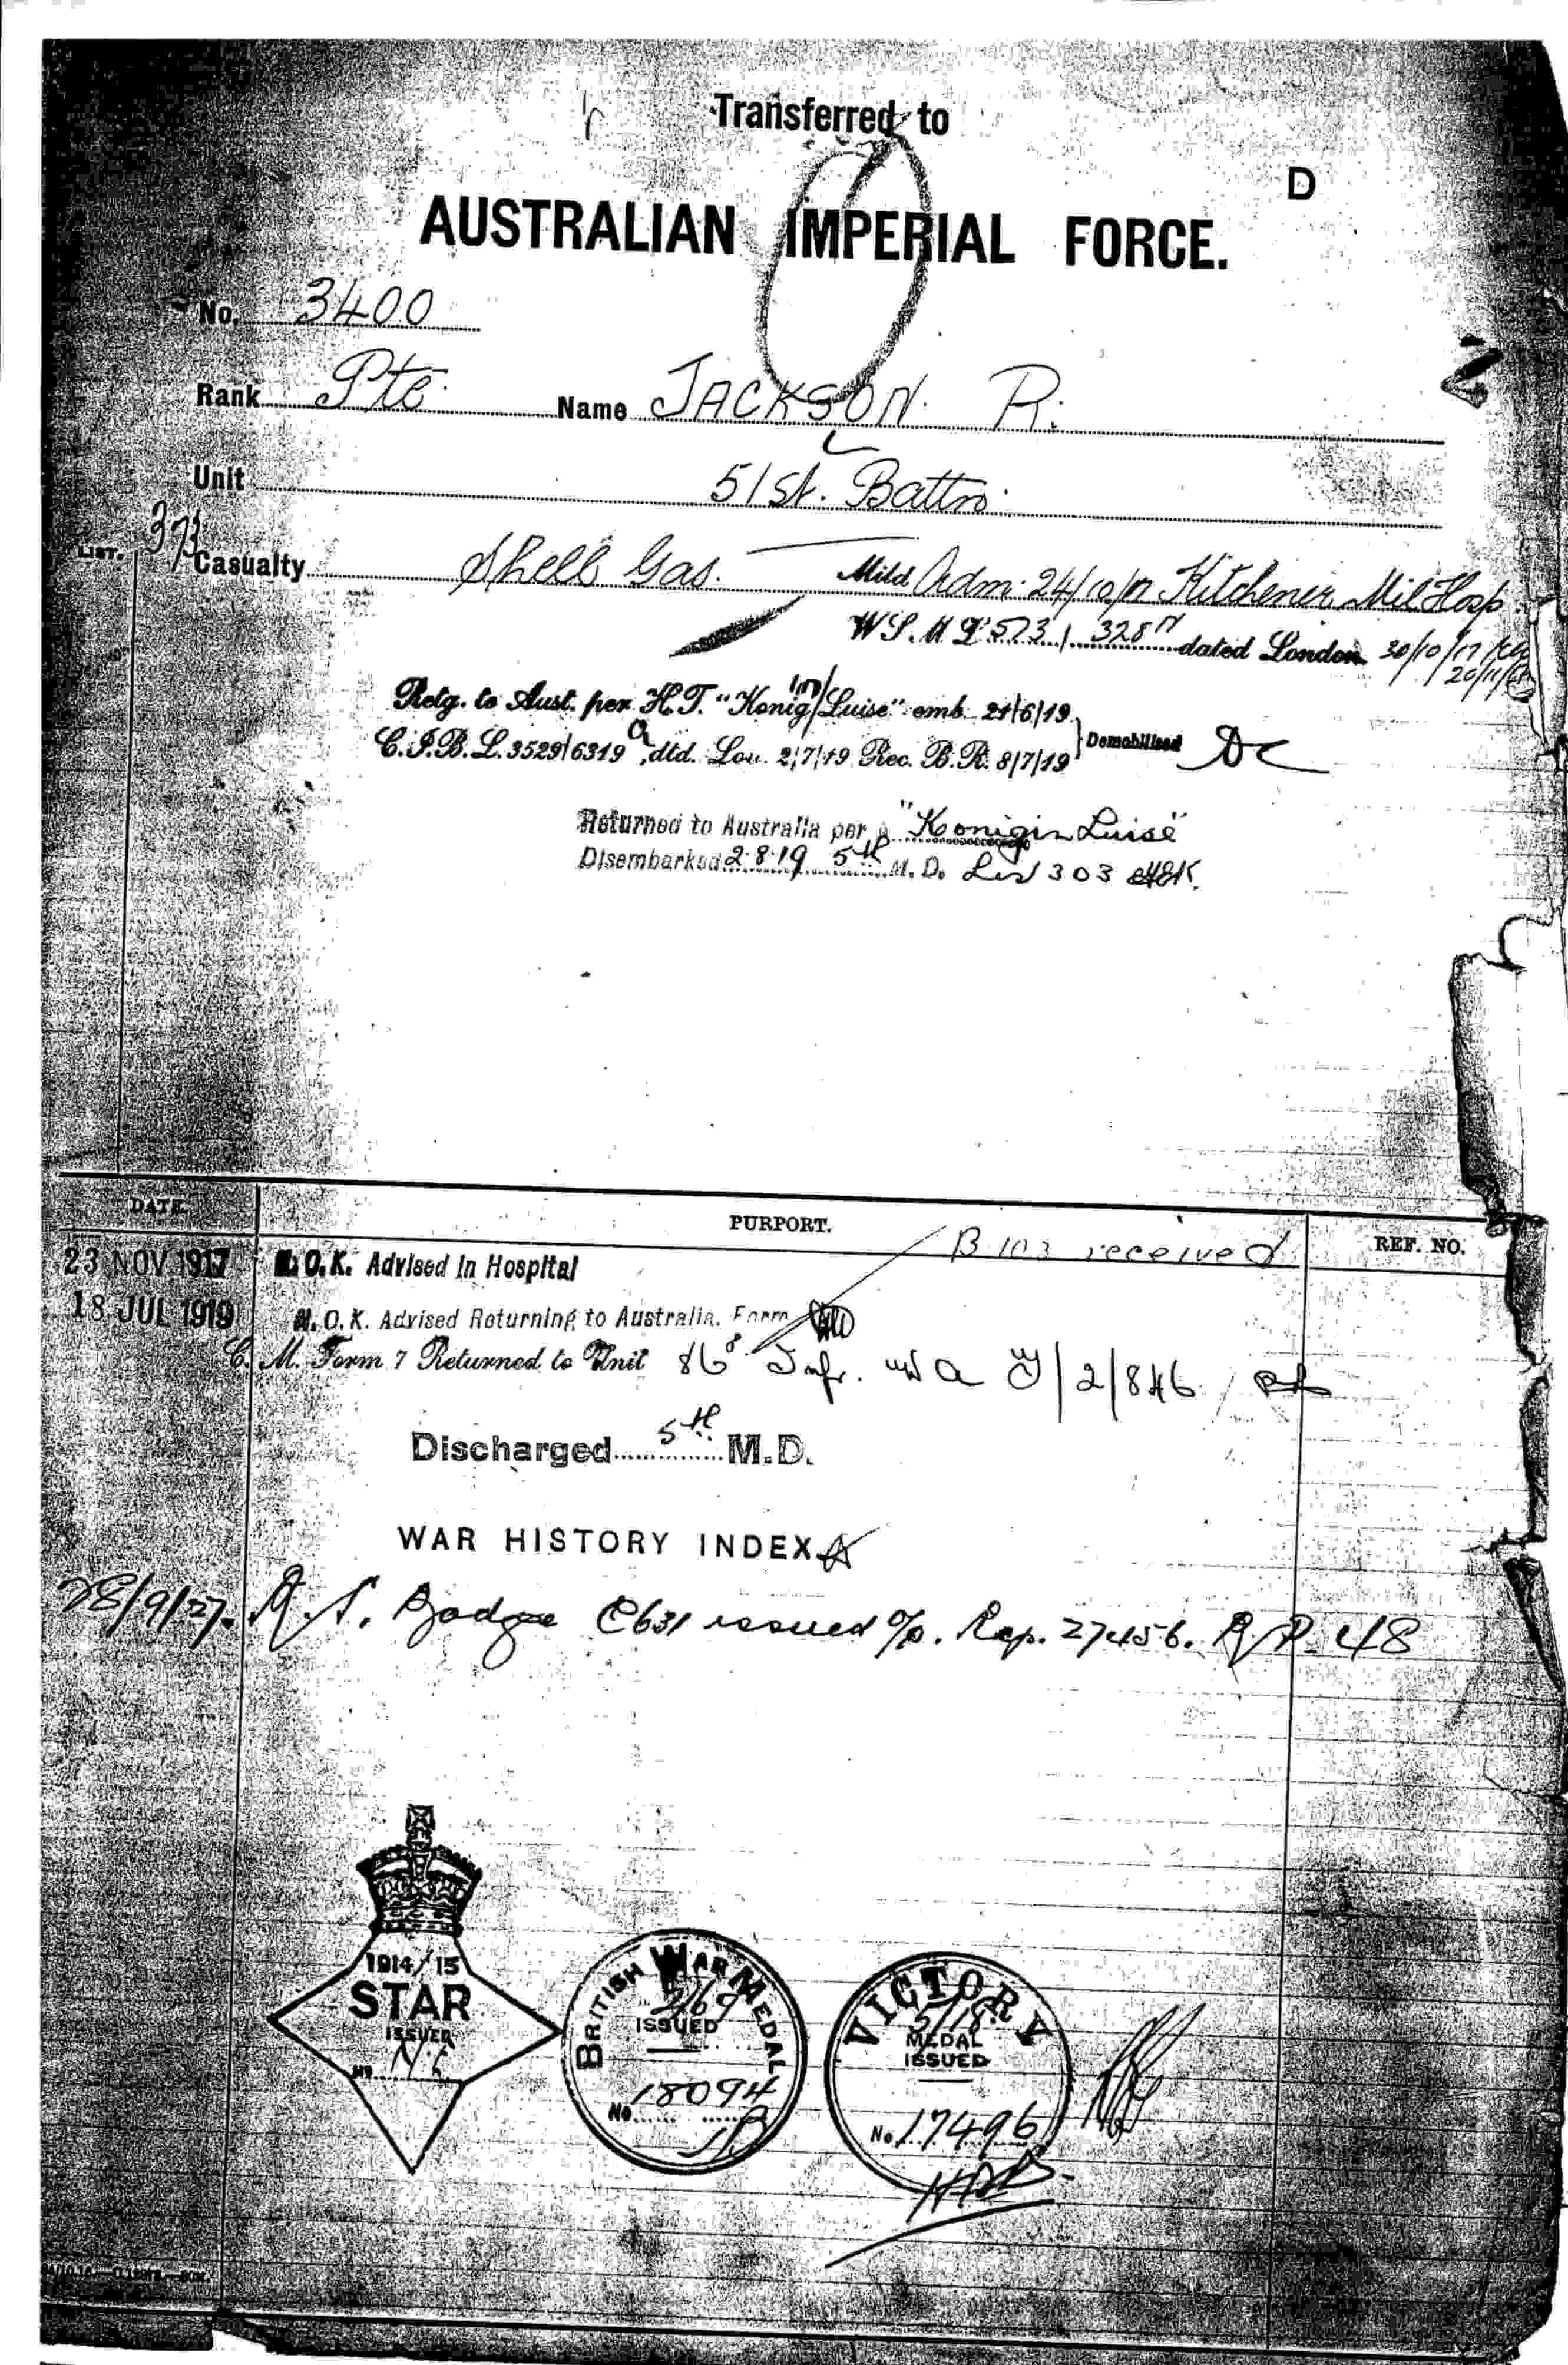 Transferred to
D
AUSTRALIAN IMPERIAL FORCE.
No. 3400
Rank Pte. Name JACKSON. R.
Unit 51st. Battn.
LIST. 373 Casualty Shell Gas. Mild Adm. 24/10/17 Kitchener Mil Hosp.
dated London 30/10/17
Retg. to Aust. per H.T. "Konigin Luise" emb. 21/6/19
C.I.B.L. 3529/6319 a, dtd. Lon. 2/7/19 Rec. B.R. 8/7/19 } Demobilised
Returned to Australia per "Konigin Luise"
Disembarked 2.8.19 5th M.D. List 303
DATE. PURPORT. REF. NO.
B 103 received
23 NOV 1917 N.O.K. Advised in Hospital
18 JUL 1919 N.O.K. Advised Returning to Australia. Form
C. M. Form 7 Returned to Unit
Discharged 5th M.D.
WAR HISTORY INDEX
28/9/27. R.S. Badge issued Rep. 27456. 48
1914/15
STAR
ISSUED
No.
BRITISH WAR MEDAL
ISSUED
No. 18094
VICTORY
MEDAL
ISSUED
No. 17496